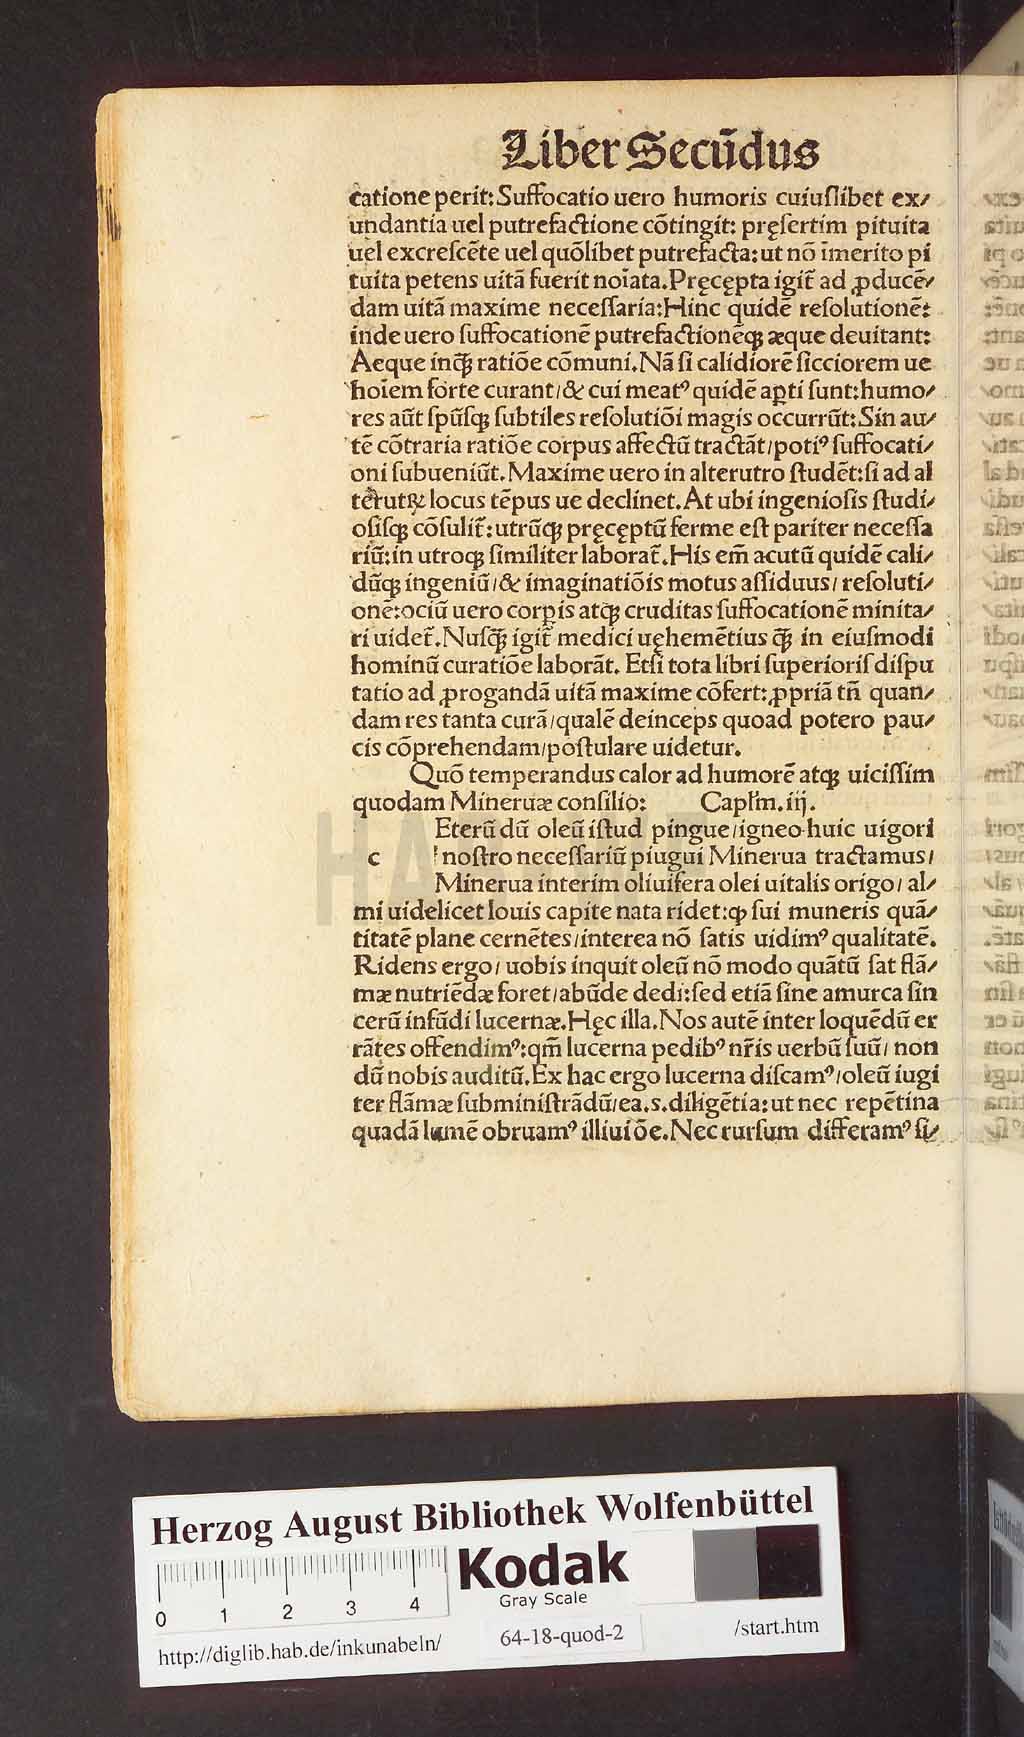 Liber Secūdus
catione perit: Suffocatio uero humoris cuiuſlibet ex⸗
undantia uel putrefactione cōtingit: pręſertim pituita
uel excreſcēte uel quōlibet putrefacta: ut nō īmerito pi
tuita petens uitā fuerit noīata. Pręcepta igit̄ ad ꝓducē⸗
dam uitā maxime neceſſaria: Hinc quidē reſolutionē:
inde uero ſuffocationē putrefactionēꝗ æque deuitant:
Aeque inꝗ̄ ratiōe cōmuni. Nā ſi calidiorē ſicciorem ue
hoīem forte curant/ & cui meatꝰ quidē aꝑti ſunt: humo⸗
res aūt ſpūſꝗ ſubtiles reſolutiōi magis occurrūt: Sin au⸗
tē cōtraria ratiōe corpus affectū tractāt/ potiꝰ ſuffocati⸗
oni ſubueniūt. Maxime uero in alterutro ſtudēt: ſi ad al
terutꝝ locus tēpus ue declinet. At ubi ingenioſis ſtudi⸗
oſiſꝗ cōſulit̄: utrūꝗ pręcęptū ferme eſt pariter neceſſa
riū: in utroꝗ ſimiliter laborat̄. His em̄ acutū quidē cali⸗
dūꝗ ingeniū/ & imaginatiōis motus aſſiduus/ reſoluti⸗
one: ociū uero corꝑis atꝗ cruditas ſuffocationē minita⸗
ri uidet̄. Nuſꝗ̄ igit̄ medici uęhemētius ꝗ̄ in eiuſmodi
hominū curatiōe laborāt. Etſi tota libri ſuperioriſ diſpu
tatio ad ꝓrogandā uitā maxime cōfert: ꝓpriā tn̄ quan⸗
dam res tanta curā/ qualē deinceps quoad potero pau⸗
cis cōprehendam/ poſtulare uidetur.
Quō temperandus calor ad humorē atꝗ uiciſſim
quodam Mineruæ conſilio: Capl̄m. iij.
Eterū dū oleū iſtud pingue/ igneo huic uigori
c noſtro neceſſariū piugui Minerua tractamus/
Minerua interim oliuifera olei uitalis origo/ al⸗
mi uidelicet Iouis capite nata ridet: ꝙ ſui muneris quā⸗
titatē plane cernētes/ interea nō ſatis uidimꝰ qualitatē.
Ridens ergo/ uobis inquit oleū nō modo quātū ſat flā⸗
mæ nutriēdæ foret/ abūde dedi: ſed etiā ſine amurca ſin
cerū infūdi lucernæ. Hęc illa. Nos autē inter loquēdū er
rātes offendimꝰ: qm̄ lucerna pedibꝰ nr̄is uerbū ſuū/ non
dū nobis auditū. Ex hac ergo lucerna diſcamꝰ/ oleū iugi
ter flāmæ ſubminiſtrādū/ ea. s. diligētia: ut nec repētina
quadā lumē obruamꝰ illiuiōe. Nec rurſum differamꝰ ſi⸗
Herzog August Bibliothek Wolfenbüttel
Kodak
Gray Scale
0 1 2 3 4
http://diglib.hab.de/inkunabeln/ 64-18-quod-2 /start.htm